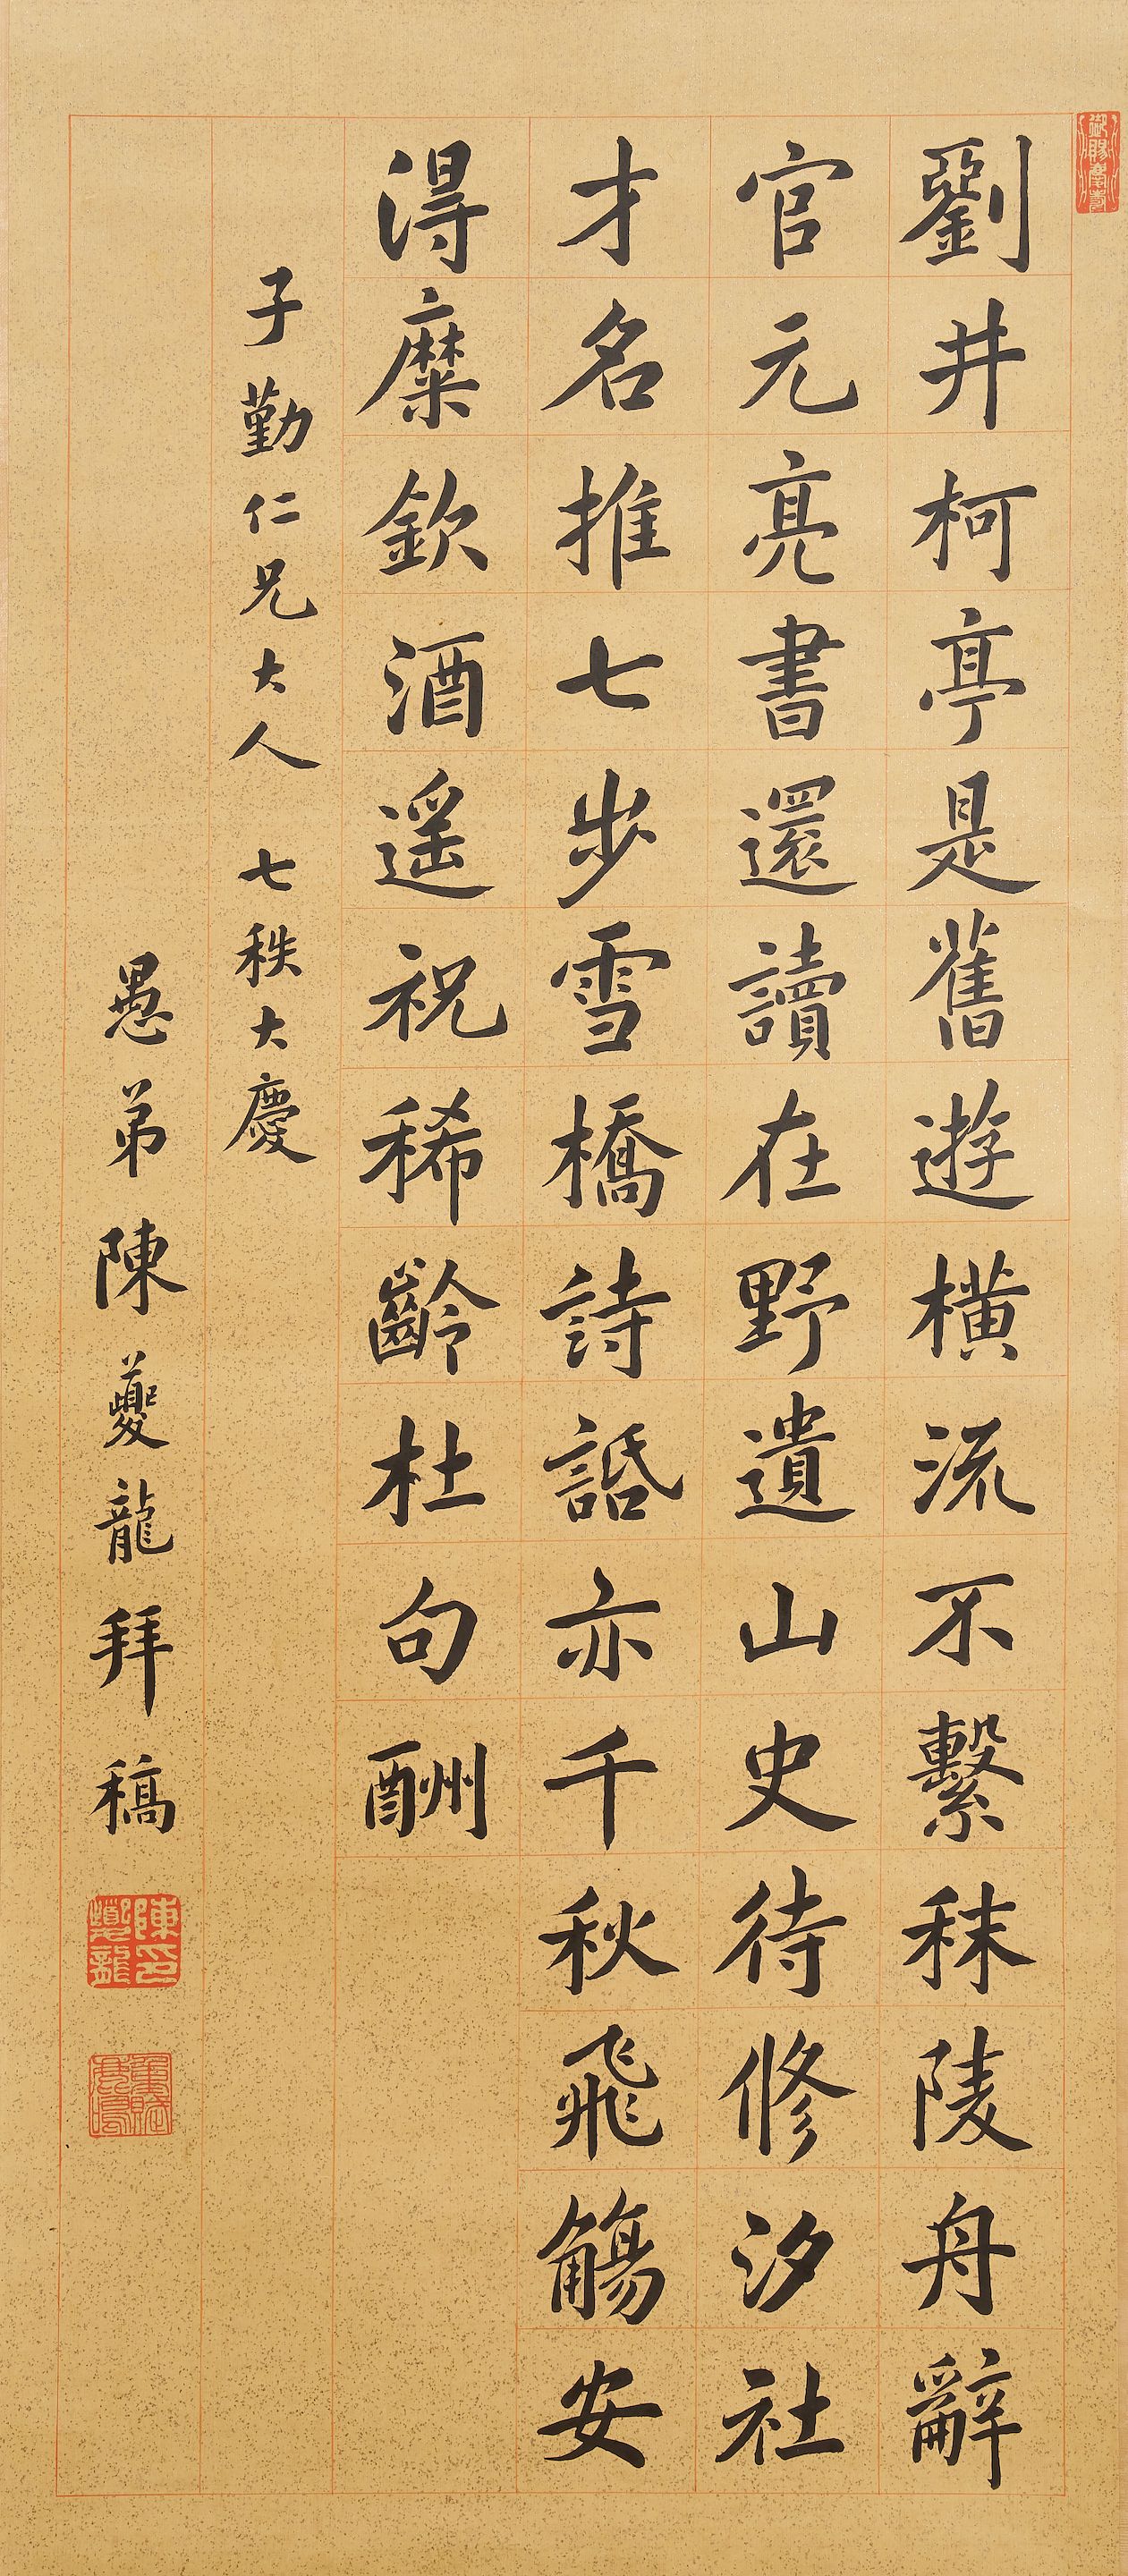 劉井柯亭是舊遊橫流不繫秣陵舟辭
官元亮書還讀在野遺山史待修汐社
才名推七步雪橋詩話亦千秋飛觴安
得糜欽酒遥祝稀齡杜句酬
子勤仁兄大人 七秩大慶
愚弟陳夔龍拜稿
陳夔龍印